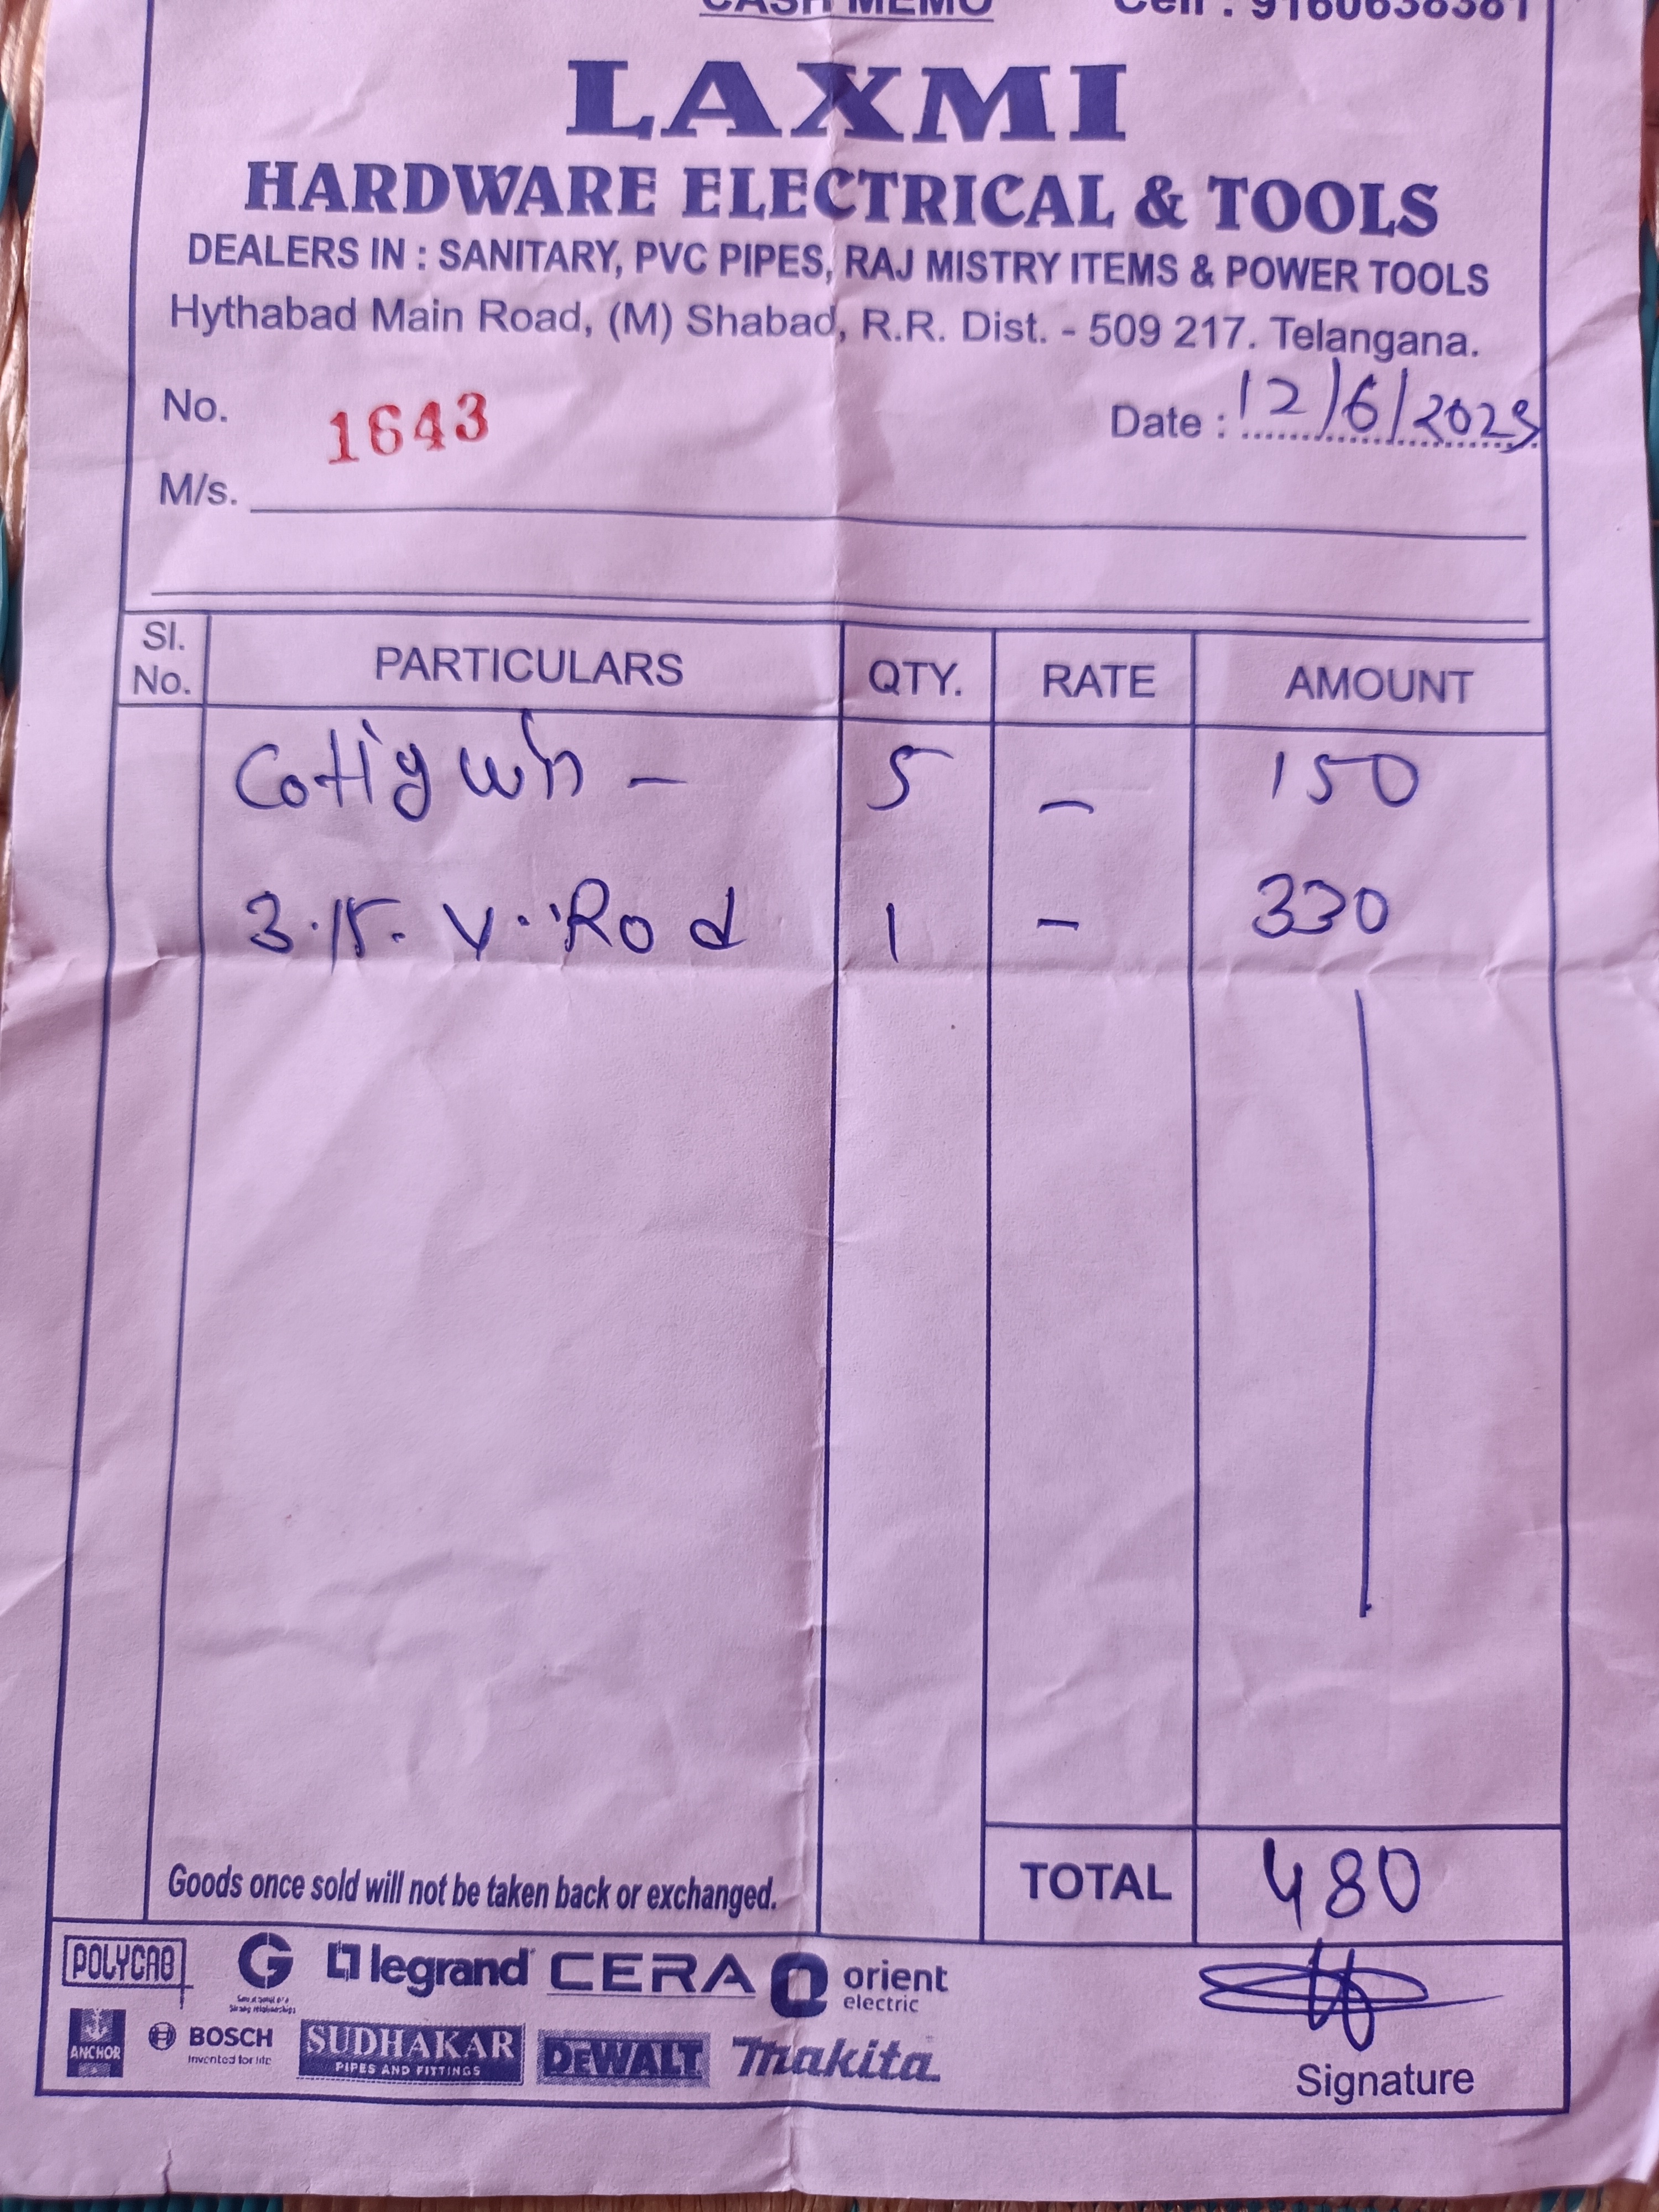 CASH MEMO Cell : 9160638381
LAXMI
HARDWARE ELECTRICAL & TOOLS
DEALERS IN : SANITARY, PVC PIPES, RAJ MISTRY ITEMS & POWER TOOLS
Hythabad Main Road, (M) Shabad, R.R. Dist. - 509 217. Telangana.
No. 1643 Date : 12/6/202
M/s.
Sl. No. PARTICULARS QTY. RATE AMOUNT
- 5 - 150
Rod 1 - 330
Goods once sold will not be taken back or exchanged. TOTAL 480
POLYCAB G legrand CERA orient electric
ANCHOR BOSCH Invented for life SUDHAKAR PIPES AND FITTINGS DEWALT Makita
Signature